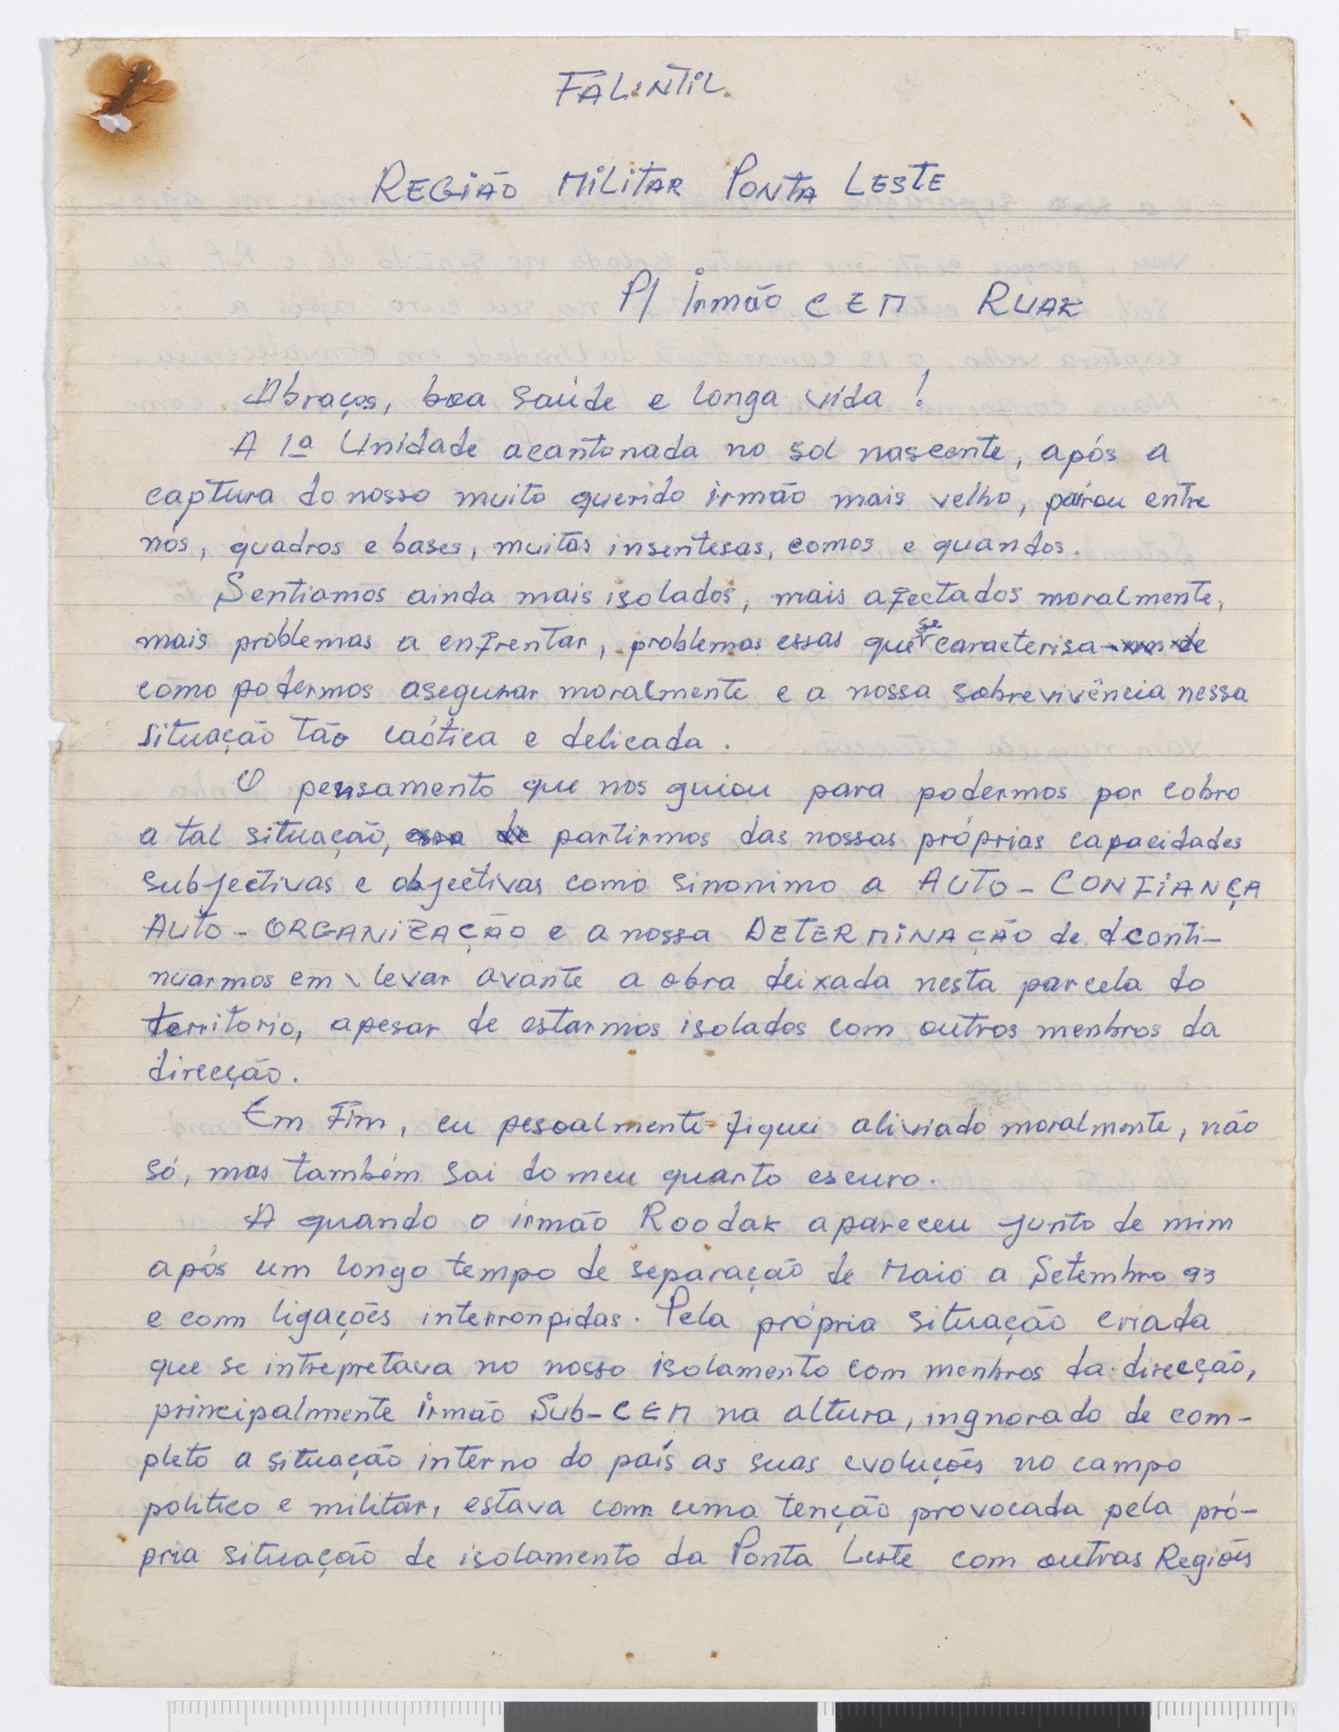 FALINTIL.
REGIÃO MILITAR PONTA LESTE
P/ Irmão CEM RUAK
Abraços, boa saúde e longa vida!
A 1ª Unidade acantonada no sol nascente, após a
captura do nosso muito querido irmão mais velho, pairou entre
nós, quadros e bases, muitas insertesas, comos e quandos.
Sentiamos ainda mais isolados, mais afectados moralmente,
mais problemas a enfrentar, problemas essas que se caracterisa
como podermos asegurar moralmente e a nossa sobrevivência nessa
situação tão caótica e delicada.
O pensamento que nos guiou para podermos por cobro
a tal situação, partirmos das nossas próprias capacidades
subjectivas e objectivas como sinonimo a AUTO-CONFIANÇA
AUTO-ORGANIZAÇÃO e a nossa DETERMINAÇÃO de conti-
nuarmos em levar avante a obra deixada nesta parcela do
territorio, apesar de estarmos isolados com outros menbros da
direcção.
Em Fim, eu pesoalmente fiquei aliviado moralmente, não
só, mas também sai do meu quarto escuro.
A quando o irmão Roodak apareceu junto de mim
após um longo tempo de separação de Maio a Setembro 93
e com ligações interronpidas. Pela própria situação criada
que se intrepretava no nosso isolamento com menbros da direcção,
principalmente irmão Sub-CEM na altura, ingnorado de com-
pleto a situação interno do país as suas evoluções no campo
politico e militar, estava com uma tenção provocada pela pró-
pria situação de isolamento da Ponta Leste com outras Regiões